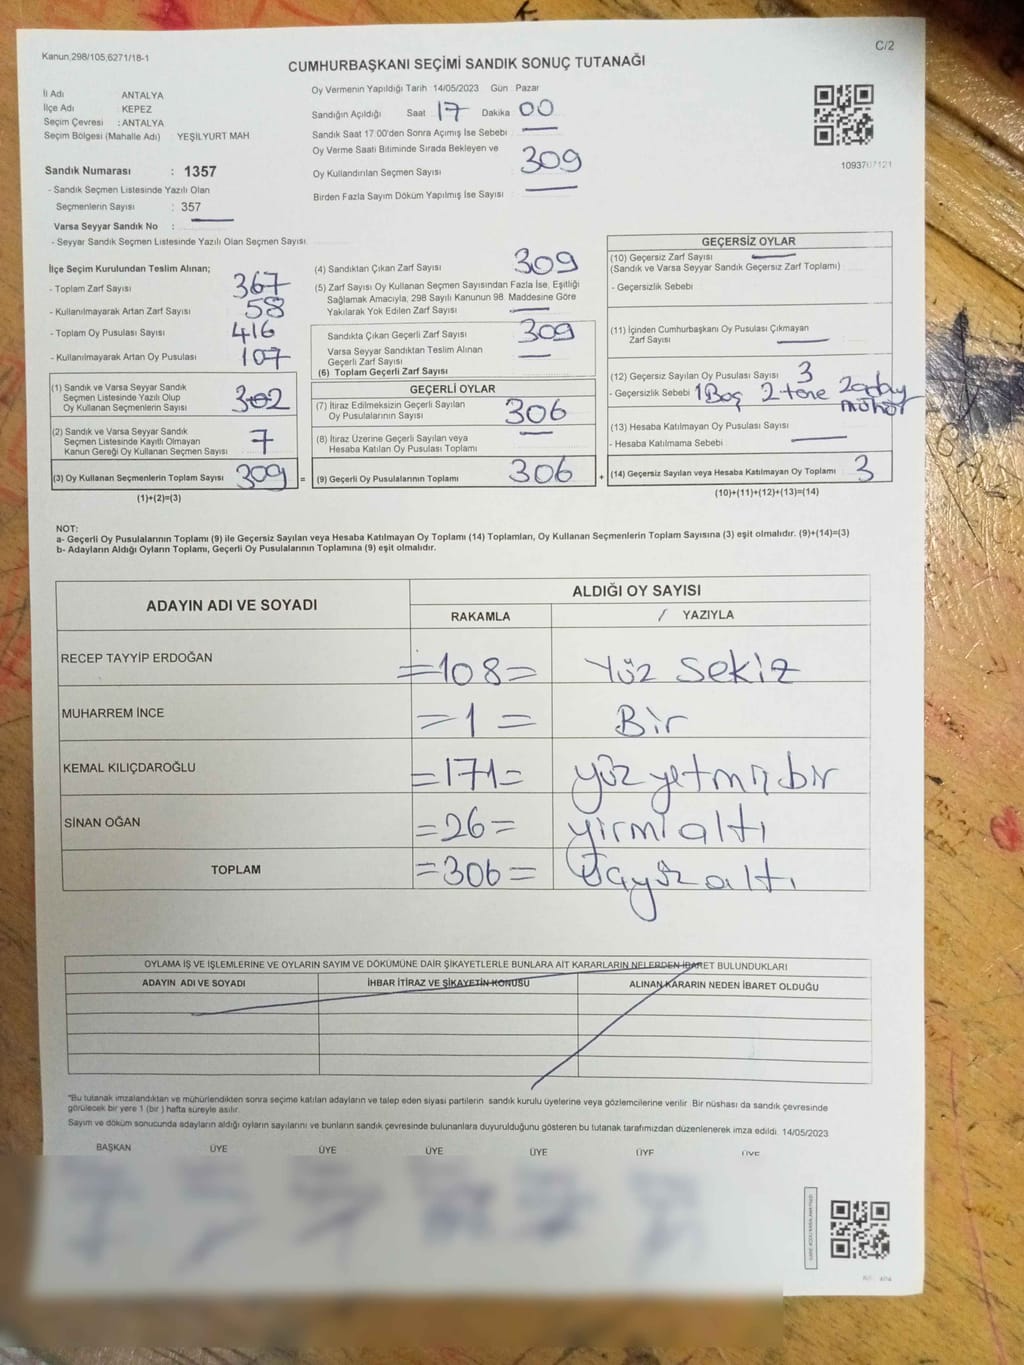 Kanun,298/105,6271/18-1
C/2
CUMHURBAŞKANI SEÇİMİ SANDIK SONUÇ TUTANAĞI
İl Adı ANTALYA
İlçe Adı KEPEZ
Seçim Çevresi : ANTALYA
Seçim Bölgesi (Mahalle Adı) YEŞİLYURT MAH
Sandık Numarası : 1357
- Sandık Seçmen Listesinde Yazılı Olan
Seçmenlerin Sayısı : 357
Varsa Seyyar Sandık No :
- Seyyar Sandık Seçmen Listesinde Yazılı Olan Seçmen Sayısı
Oy Vermenin Yapıldığı Tarih 14/05/2023 Gün Pazar
Sandığın Açıldığı Saat 17 Dakika 00
Sandık Saat 17:00'den Sonra Açımış İse Sebebi
Oy Verme Saati Bitiminde Sırada Bekleyen ve
Oy Kullandırılan Seçmen Sayısı 309
Birden Fazla Sayım Döküm Yapılmış İse Sayısı
1093707121
İlçe Seçim Kurulundan Teslim Alınan;
- Toplam Zarf Sayısı 367
- Kullanılmayarak Artan Zarf Sayısı 58
- Toplam Oy Pusulası Sayısı 416
- Kullanılmayarak Artan Oy Pusulası 107
(1) Sandık ve Varsa Seyyar Sandık
Seçmen Listesinde Yazılı Olup
Oy Kullanan Seçmenlerin Sayısı 302
(2) Sandık ve Varsa Seyyar Sandık
Seçmen Listesinde Kayıtlı Olmayan
Kanun Gereği Oy Kullanan Seçmen Sayısı 7
(3) Oy Kullanan Seçmenlerin Toplam Sayısı 309 =
(1)+(2)=(3)
(4) Sandıktan Çıkan Zarf Sayısı 309
(5) Zarf Sayısı Oy Kullanan Seçmen Sayısından Fazla İse, Eşitliği
Sağlamak Amacıyla, 298 Sayılı Kanunun 98. Maddesine Göre
Yakılarak Yok Edilen Zarf Sayısı
Sandıkta Çıkan Geçerli Zarf Sayısı 309
Varsa Seyyar Sandıktan Teslim Alınan
Geçerli Zarf Sayısı
(6) Toplam Geçerli Zarf Sayısı
GEÇERLİ OYLAR
(7) İtiraz Edilmeksizin Geçerli Sayılan
Oy Pusulalarının Sayısı 306
(8) İtiraz Üzerine Geçerli Sayılan veya
Hesaba Katılan Oy Pusulası Toplamı
(9) Geçerli Oy Pusulalarının Toplamı 306 +
GEÇERSİZ OYLAR
(10) Geçersiz Zarf Sayısı
(Sandık ve Varsa Seyyar Sandık Geçersiz Zarf Toplamı)
- Geçersizlik Sebebi
(11) İçinden Cumhurbaşkanı Oy Pusulası Çıkmayan
Zarf Sayısı
(12) Geçersiz Sayılan Oy Pusulası Sayısı 3
- Geçersizlik Sebebi 1 Boş 2 tane 2 aday
mühür
(13) Hesaba Katılmayan Oy Pusulası Sayısı
- Hesaba Katılmama Sebebi
(14) Geçersiz Sayılan veya Hesaba Katılmayan Oy Toplamı 3
(10)+(11)+(12)+(13)=(14)
NOT:
a- Geçerli Oy Pusulalarının Toplamı (9) ile Geçersiz Sayılan veya Hesaba Katılmayan Oy Toplamı (14) Toplamları, Oy Kullanan Seçmenlerin Toplam Sayısına (3) eşit olmalıdır. (9)+(14)=(3)
b- Adayların Aldığı Oyların Toplamı, Geçerli Oy Pusulalarının Toplamına (9) eşit olmalıdır.
ADAYIN ADI VE SOYADI ALDIĞI OY SAYISI
RAKAMLA / YAZIYLA
RECEP TAYYİP ERDOĞAN =108= Yüz Sekiz
MUHARREM İNCE =1= Bir
KEMAL KILIÇDAROĞLU =171= yüz yetmiş bir
SİNAN OĞAN =26= yirmi altı
TOPLAM =306= üçyüz altı
OYLAMA İŞ VE İŞLEMLERİNE VE OYLARIN SAYIM VE DÖKÜMÜNE DAİR ŞİKAYETLERLE BUNLARA AİT KARARLARIN NELERDEN İBARET BULUNDUKLARI
ADAYIN ADI VE SOYADI İHBAR İTİRAZ VE ŞİKAYETİN KONUSU ALINAN KARARIN NEDEN İBARET OLDUĞU
"Bu tutanak imzalandıktan ve mühürlendikten sonra seçime katılan adayların ve talep eden siyasi partilerin sandık kurulu üyelerine veya gözlemcilerine verilir. Bir nüshası da sandık çevresinde
görülecek bir yere 1 (bir) hafta süreyle asılır.
Sayım ve döküm sonucunda adayların aldığı oyların sayılarını ve bunların sandık çevresinde bulunanlara duyurulduğunu gösteren bu tutanak tarafımızdan düzenlenerek imza edildi. 14/05/2023
BAŞKAN ÜYE ÜYE ÜYE ÜYE ÜYE ÜYE